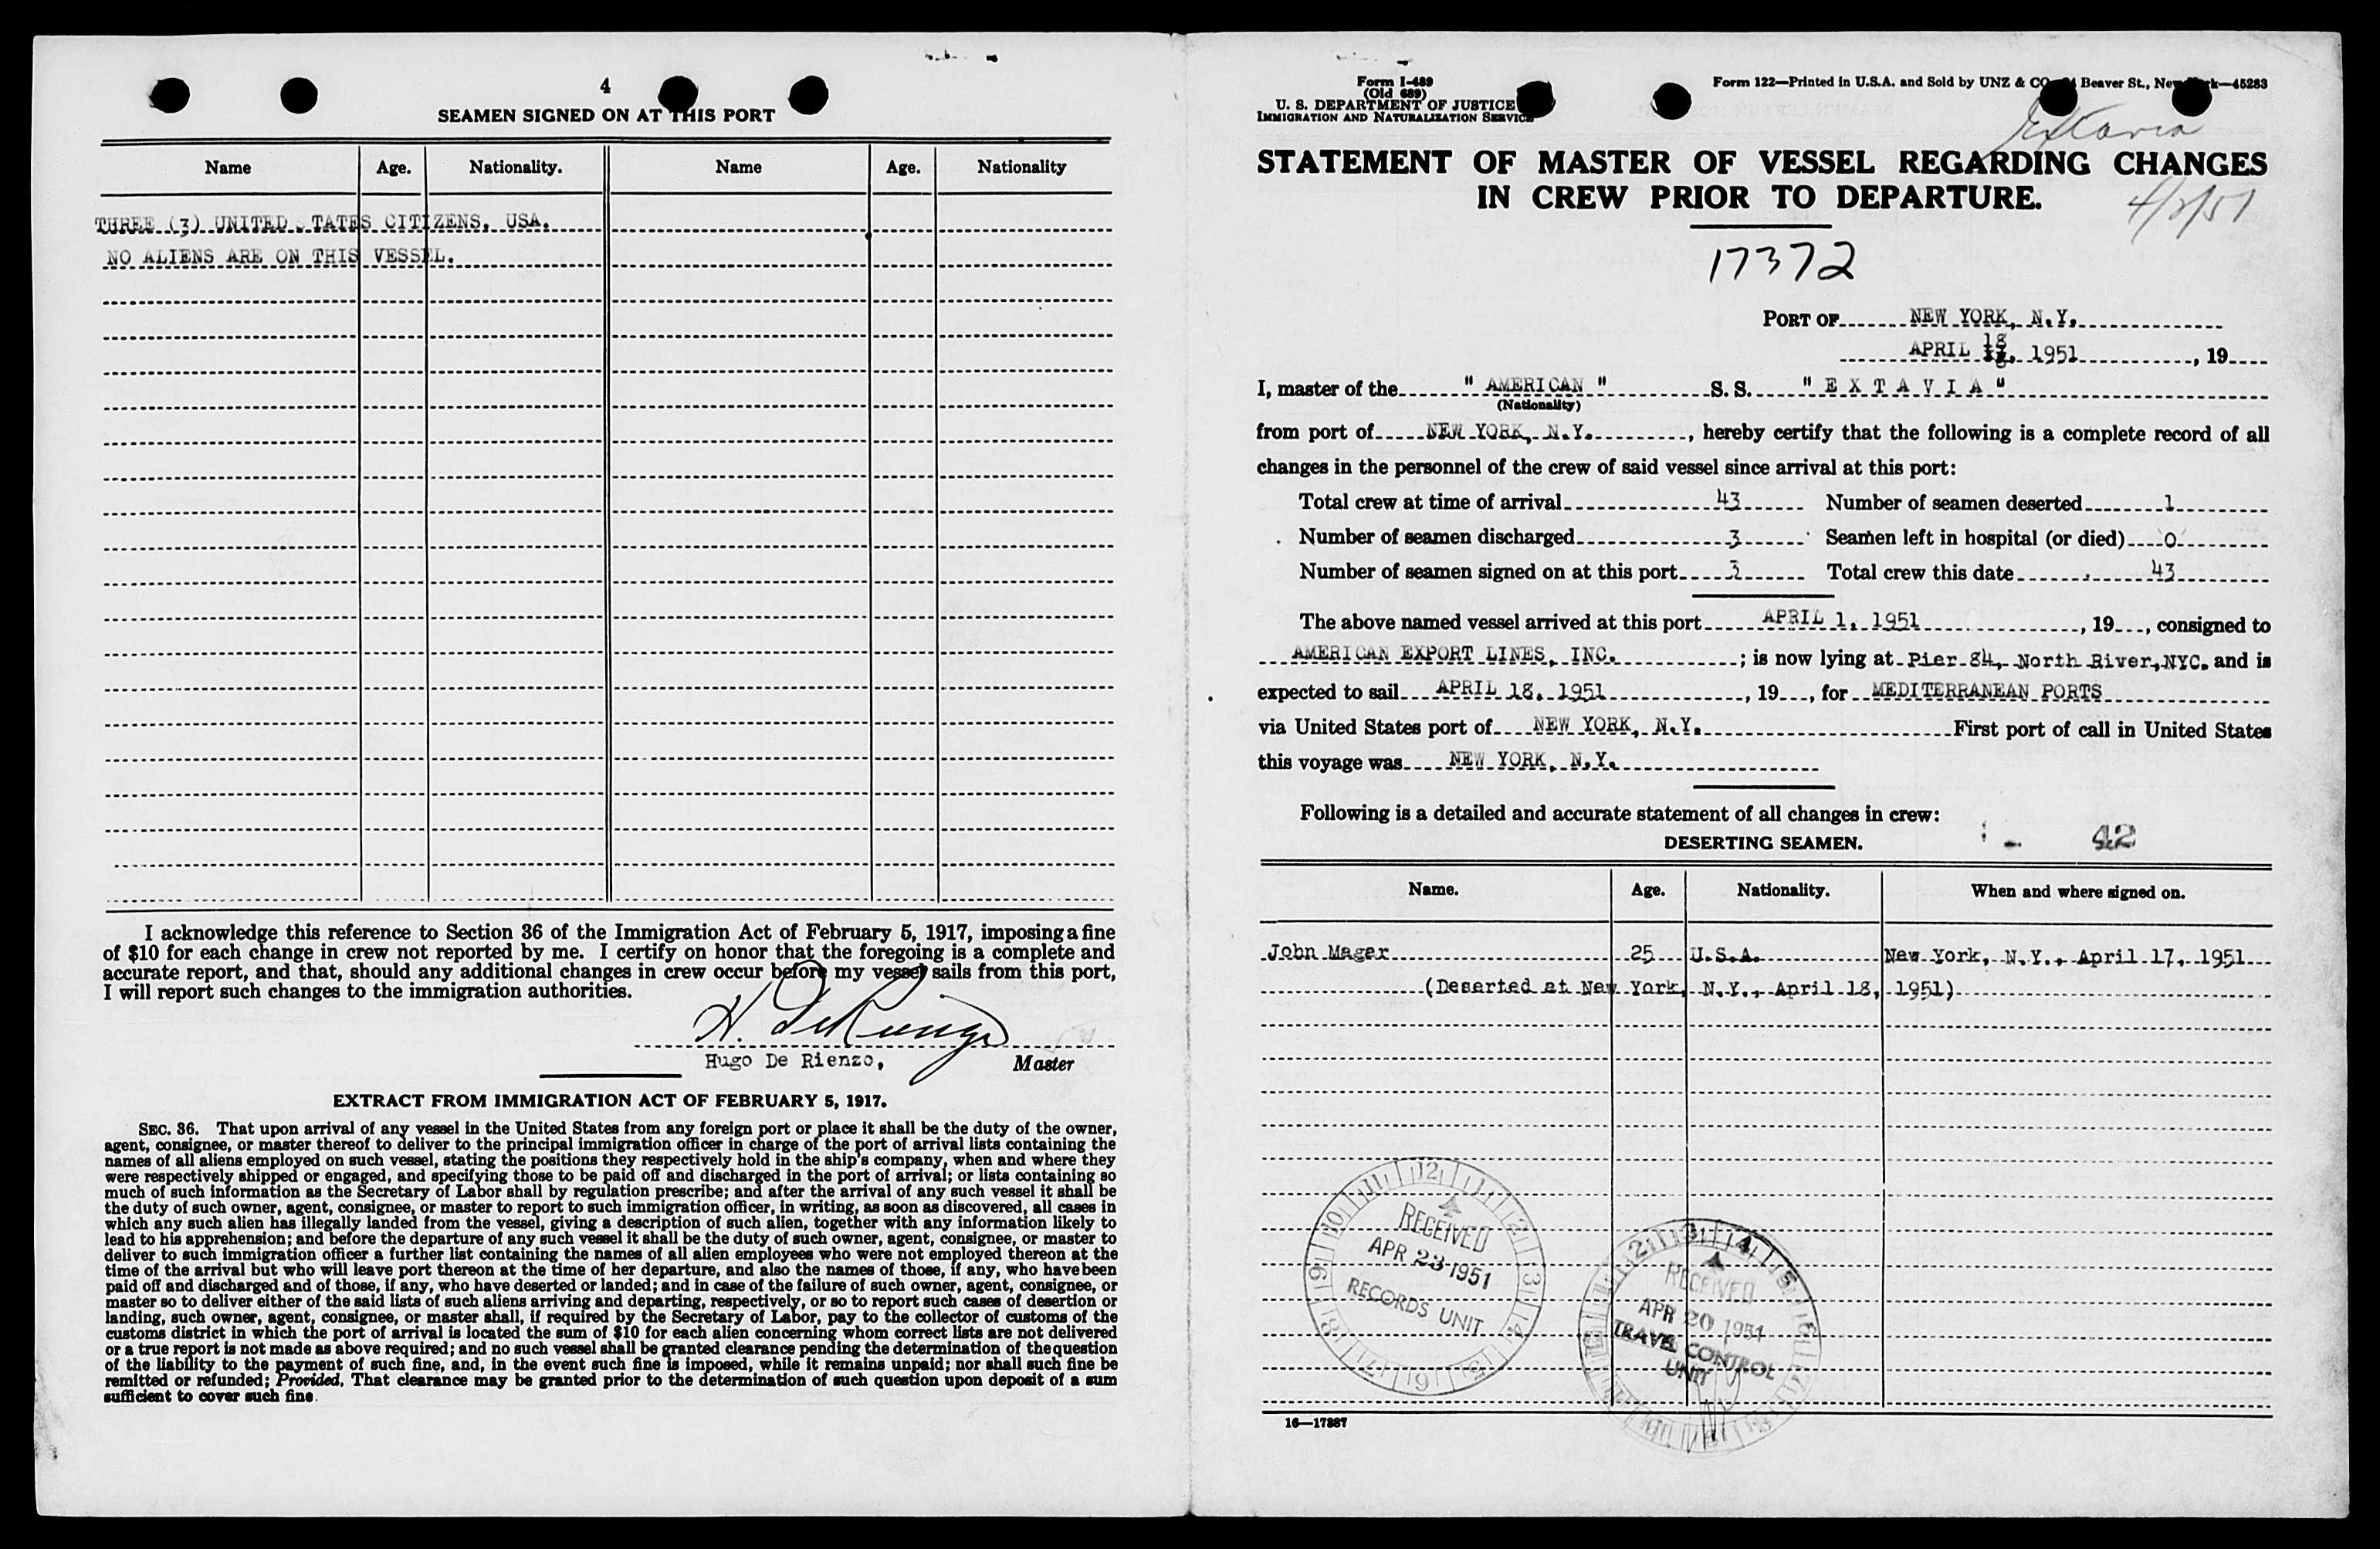 4
SEAMEN SIGNED ON AT THIS PORT
Name Age. Nationality. Name Age. Nationality
THREE (3) UNITED STATES CITIZENS, USA.
NO ALIENS ARE ON THIS VESSEL.
I acknowledge this reference to Section 36 of the Immigration Act of February 5, 1917, imposing a fine
of $10 for each change in crew not reported by me. I certify on honor that the foregoing is a complete and
accurate report, and that, should any additional changes in crew occur before my vessel sails from this port,
I will report such changes to the immigration authorities.
H. De Rienzo
Hugo De Rienzo, Master
EXTRACT FROM IMMIGRATION ACT OF FEBRUARY 5, 1917.
SEC. 36. That upon arrival of any vessel in the United States from any foreign port or place it shall be the duty of the owner,
agent, consignee, or master thereof to deliver to the principal immigration officer in charge of the port of arrival lists containing the
names of all aliens employed on such vessel, stating the positions they respectively hold in the ship's company, when and where they
were respectively shipped or engaged, and specifying those to be paid off and discharged in the port of arrival; or lists containing so
much of such information as the Secretary of Labor shall by regulation prescribe; and after the arrival of any such vessel it shall be
the duty of such owner, agent, consignee, or master to report to such immigration officer, in writing, as soon as discovered, all cases in
which any such alien has illegally landed from the vessel, giving a description of such alien, together with any information likely to
lead to his apprehension; and before the departure of any such vessel it shall be the duty of such owner, agent, consignee, or master to
deliver to such immigration officer a further list containing the names of all alien employees who were not employed thereon at the
time of the arrival but who will leave port thereon at the time of her departure, and also the names of those, if any, who have been
paid off and discharged and of those, if any, who have deserted or landed; and in case of the failure of such owner, agent, consignee, or
master so to deliver either of the said lists of such aliens arriving and departing, respectively, or so to report such cases of desertion or
landing, such owner, agent, consignee, or master shall, if required by the Secretary of Labor, pay to the collector of customs of the
customs district in which the port of arrival is located the sum of $10 for each alien concerning whom correct lists are not delivered
or a true report is not made as above required; and no such vessel shall be granted clearance pending the determination of the question
of the liability to the payment of such fine, and, in the event such fine is imposed, while it remains unpaid; nor shall such fine be
remitted or refunded; Provided, That clearance may be granted prior to the determination of such question upon deposit of a sum
sufficient to cover such fine.
Form I-489
(Old 689)
U. S. DEPARTMENT OF JUSTICE
IMMIGRATION AND NATURALIZATION SERVICE
Form 122—Printed in U.S.A. and Sold by UNZ & CO. Beaver St., New York—45283
Extavia
STATEMENT OF MASTER OF VESSEL REGARDING CHANGES
IN CREW PRIOR TO DEPARTURE.
17372
PORT OF NEW YORK, N.Y.
APRIL 18, 1951, 19
I, master of the " AMERICAN " S. S. " E X T A V I A "
(Nationality)
from port of NEW YORK, N.Y., hereby certify that the following is a complete record of all
changes in the personnel of the crew of said vessel since arrival at this port:
Total crew at time of arrival 43 Number of seamen deserted 1
Number of seamen discharged 3 Seamen left in hospital (or died) 0
Number of seamen signed on at this port 3 Total crew this date 43
The above named vessel arrived at this port APRIL 1, 1951, 19, consigned to
AMERICAN EXPORT LINES, INC.; is now lying at Pier 84, North River, NYC. and is
expected to sail APRIL 18, 1951, 19, for MEDITERRANEAN PORTS
via United States port of NEW YORK, N.Y. First port of call in United States
this voyage was NEW YORK, N.Y.
Following is a detailed and accurate statement of all changes in crew:
DESERTING SEAMEN. 42
Name. Age. Nationality. When and where signed on.
John Mager 25 U.S.A. New York, N.Y., April 17, 1951
(Deserted at New York, N.Y., April 18, 1951)
RECEIVED
APR 23 1951
RECORDS UNIT
RECEIVED
APR 20 1951
TRAVEL CONTROL
UNIT
16—17387